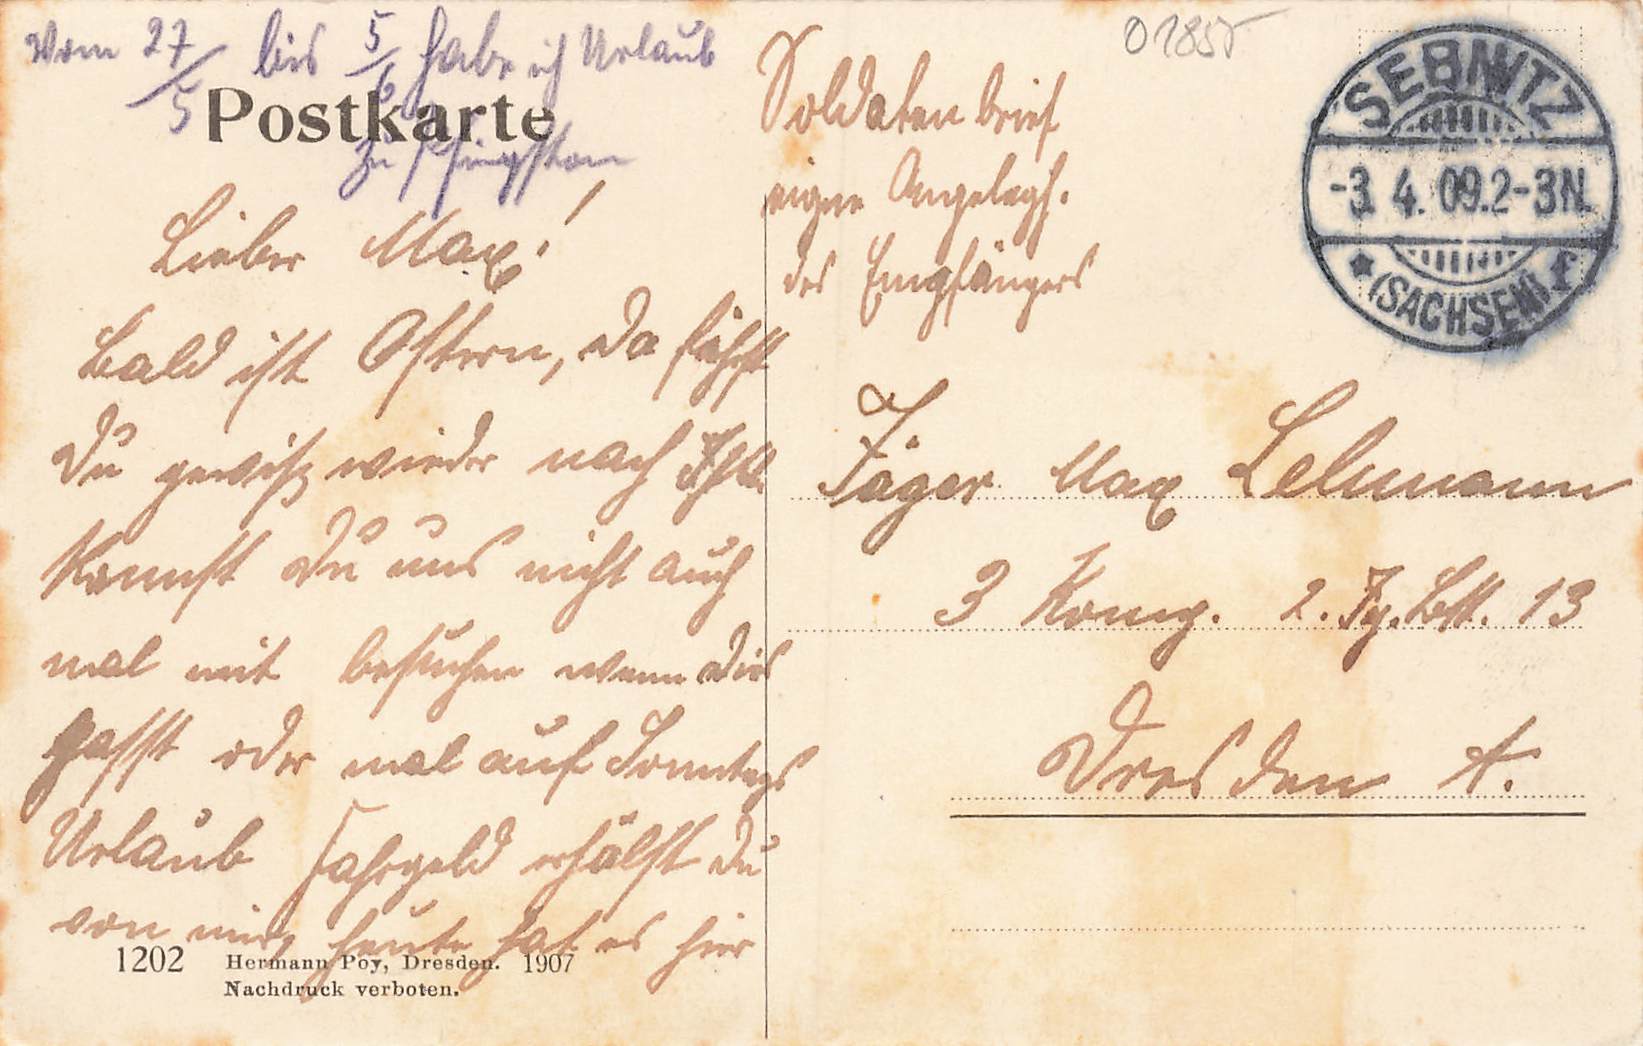 Vom 27/5 bis 5/6 habe ich Urlaub
zu Pfingsten
Postkarte
Lieber Max!
Bald ist Ostern, da fährst
Du gewiß wieder nach
Kannst Du uns nicht auch
mal mit besuchen wenn dirs
passt oder mal auf Sonntags
Urlaub Fahrgeld erhälst Du
von mir, heute hat es hier
1202 Hermann Poy, Dresden. 1907
Nachdruck verboten.
Soldatenbrief
eigne Angelegh.
des Empfängers
01855
SEBNITZ
-3. 4. 09. 2-3N.
* (SACHSEN) f
Jäger Max Lehmann
3 Komp. 2. Jg. Btl. 13
Dresden A.